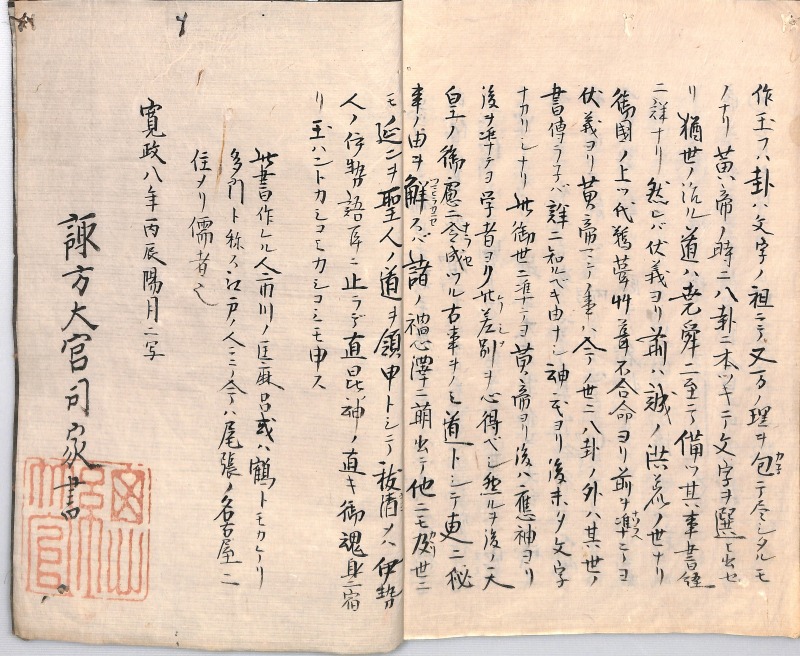 作玉フハ卦ハ文字ノ祖ニテ又万ノ理ヲ包テ令シタルモ
ノナリ黄帝ノ時ニ八卦ニ本ツキテ文字ヲ撰ヒ出セ
リ猶世ノ治ル道ハ尭舜ニ至テ備ツ其事書経
ニ詳ナリ然レバ伏義ヨリ前ハ誠ノ洪荒ノ世ナリ
御国ノ上ツ代鵜葺艸葺不合命ヨリ前ヲ準テヨ
伏義ヨリ黄帝マテノ事ハ今ノ世ニ八卦ノ外ハ其世ノ
書傳ラネバ詳ニ知ルベキ由ナシ神武ヨリ後未タ文字
ナカリシナリ此御世ニ準テヨ黄帝ヨリ後ハ應神ヨリ
後ヲ準テヨ学者ヨク此差別ヲ心得ベシ然ルヲ後ノ天
皇ノ御慮ニ令成ツル古事ヲノミ道トシテ更ニ秘
事ノ由ヲ解スバ諸ノ禍心澤ニ萌出テ他ニモ及世ニ
モ延ニヲ聖人ノ道ヲ領申トシテ祓清メハ伊勢
人ノ伊勢語耳ニ止ラデ直毘神ノ直キ御魂身ニ宿
リ玉ハントカシコミカシコミモ申ス
此書作レル人市川ノ匡麻呂或ハ鶴トモカケリ
多門ト称ス江戸ノ人ニテ今ハ尾張ノ名古屋ニ
住メリ儒者也
寛政八年丙辰陽月ニ写
諏方大官司家書